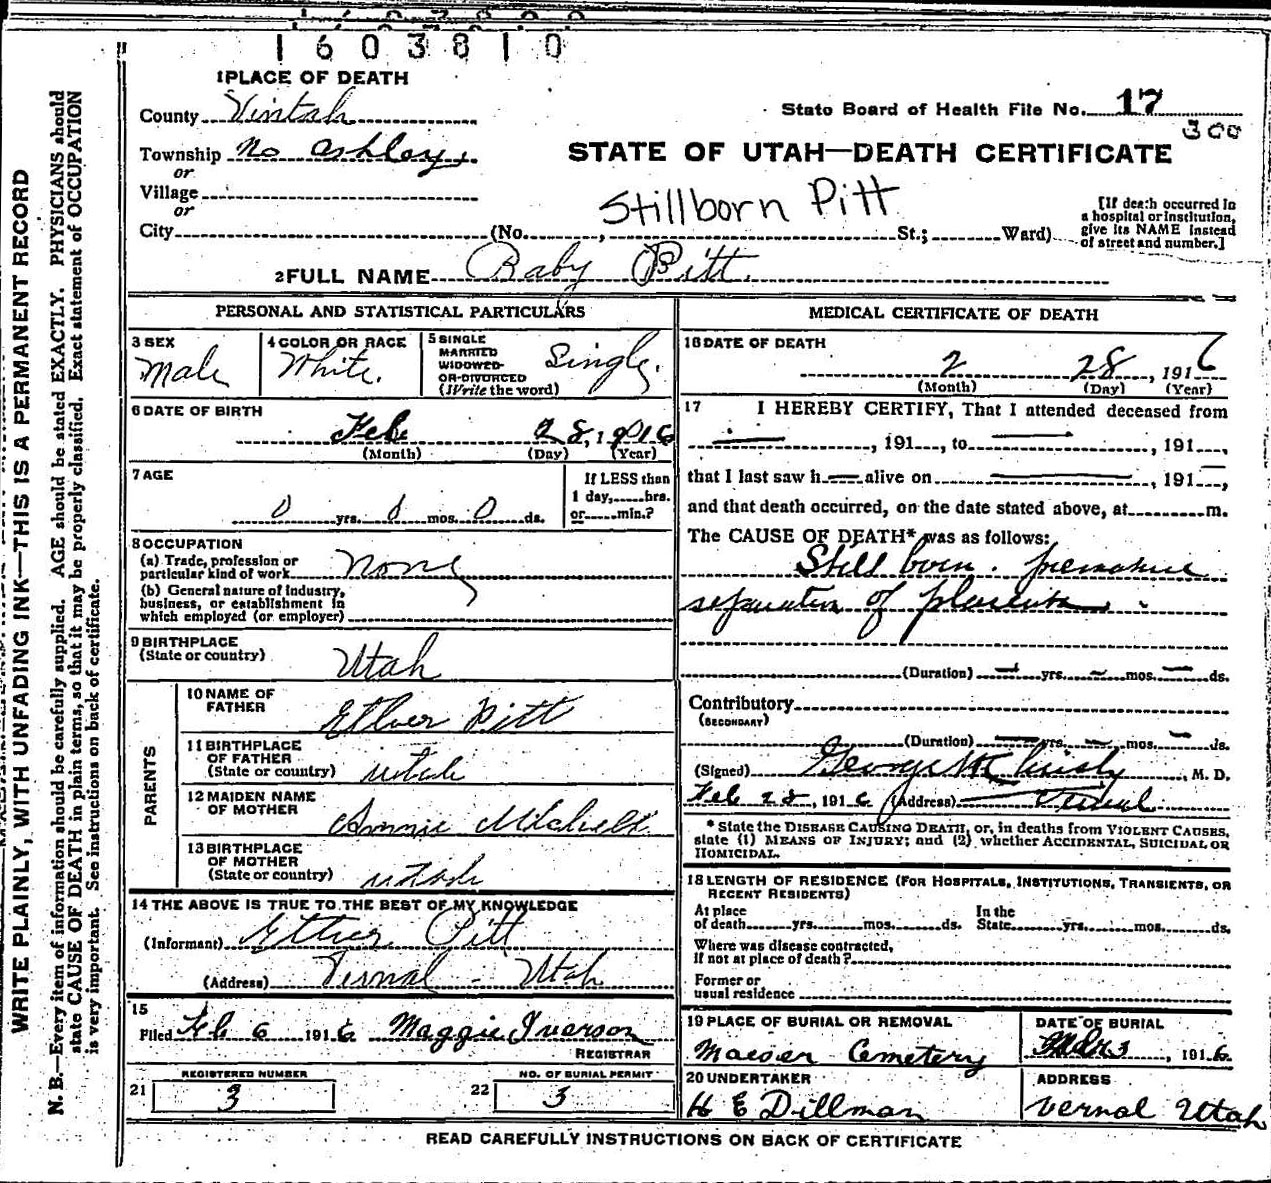 1603810
1 PLACE OF DEATH
County Uintah
State Board of Health File No. 17
300
Township No Ashley
or
STATE OF UTAH—DEATH CERTIFICATE
Village
or
Stillborn Pitt
City (No. , St.; Ward)
[If death occurred in
a hospital or institution,
give its NAME instead
of street and number.]
2 FULL NAME Baby Pitt.
PERSONAL AND STATISTICAL PARTICULARS
3 SEX
Male
4 COLOR OR RACE
White.
5 SINGLE
MARRIED
WIDOWED
OR DIVORCED
(Write the word)
Single.
6 DATE OF BIRTH
Feb 28, 1916
(Month) (Day) (Year)
7 AGE
0 yrs. 0 mos. 0 ds.
If LESS than
1 day, hrs.
or min.?
8 OCCUPATION
(a) Trade, profession or
particular kind of work None
(b) General nature of industry,
business, or establishment in
which employed (or employer)
9 BIRTHPLACE
(State or country)
Utah
PARENTS
10 NAME OF
FATHER
Pitt
11 BIRTHPLACE
OF FATHER
(State or country) Utah
12 MAIDEN NAME
OF MOTHER
Annie Mitchell
13 BIRTHPLACE
OF MOTHER
(State or country) Utah
14 THE ABOVE IS TRUE TO THE BEST OF MY KNOWLEDGE
(Informant) Pitt
(Address) Vernal - Utah
15
Filed Feb 6 1916 Maggie Ivarson
REGISTRAR
REGISTERED NUMBER
21 3
NO. OF BURIAL PERMIT
22 3
MEDICAL CERTIFICATE OF DEATH
16 DATE OF DEATH
2 28, 1916
(Month) (Day) (Year)
17 I HEREBY CERTIFY, That I attended deceased from
— , 191 , to — , 191 ,
that I last saw h — alive on — , 191— ,
and that death occurred, on the date stated above, at m.
The CAUSE OF DEATH* was as follows:
Still born. premature
separation of placenta.
(Duration) — yrs. — mos. — ds.
Contributory
(SECONDARY)
(Duration) — yrs. — mos. — ds.
(Signed) George , M. D.
Feb 28, 1916 (Address) Vernal
* State the DISEASE CAUSING DEATH, or, in deaths from VIOLENT CAUSES,
state (1) MEANS OF INJURY; and (2) whether ACCIDENTAL, SUICIDAL OR
HOMICIDAL.
18 LENGTH OF RESIDENCE (FOR HOSPITALS, INSTITUTIONS, TRANSIENTS, OR
RECENT RESIDENTS)
At place
of death yrs. mos. ds.
In the
State yrs. mos. ds.
Where was disease contracted,
if not at place of death?
Former or
usual residence
19 PLACE OF BURIAL OR REMOVAL
Maeser Cemetery
DATE OF BURIAL
3, 1916.
20 UNDERTAKER
H E Dillman
ADDRESS
Vernal Utah
READ CAREFULLY INSTRUCTIONS ON BACK OF CERTIFICATE
WRITE PLAINLY, WITH UNFADING INK—THIS IS A PERMANENT RECORD
N. B.—Every item of information should be carefully supplied. AGE should be stated EXACTLY. PHYSICIANS should
state CAUSE OF DEATH in plain terms, so that it may be properly classified. Exact statement of OCCUPATION
is very important. See instructions on back of certificate.